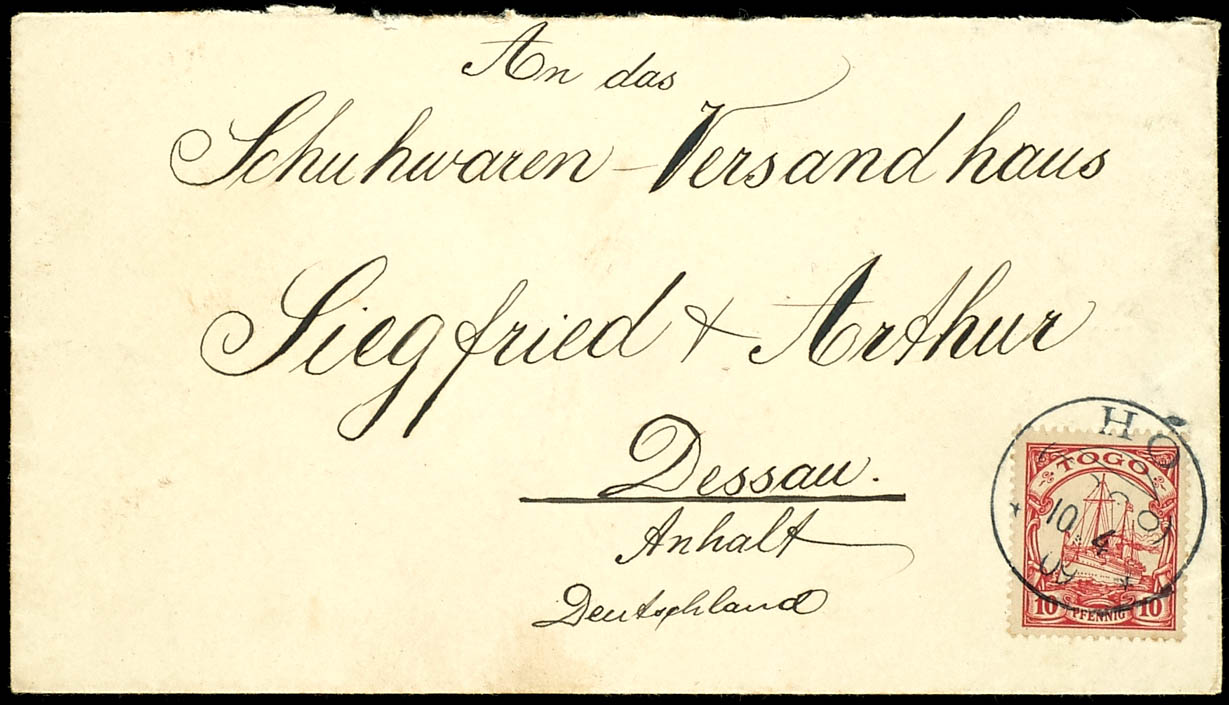 An das
Schuhwaren-Versandhaus
Siegfried & Arthur
Dessau.
Anhalt
Deutschland
HO
TOGO
10
4
09
10 PFENNIG 10